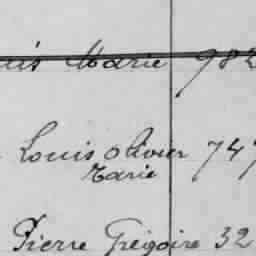 Marie 982
Louis Olivier 747
Marie
Pierre Grégoire 32